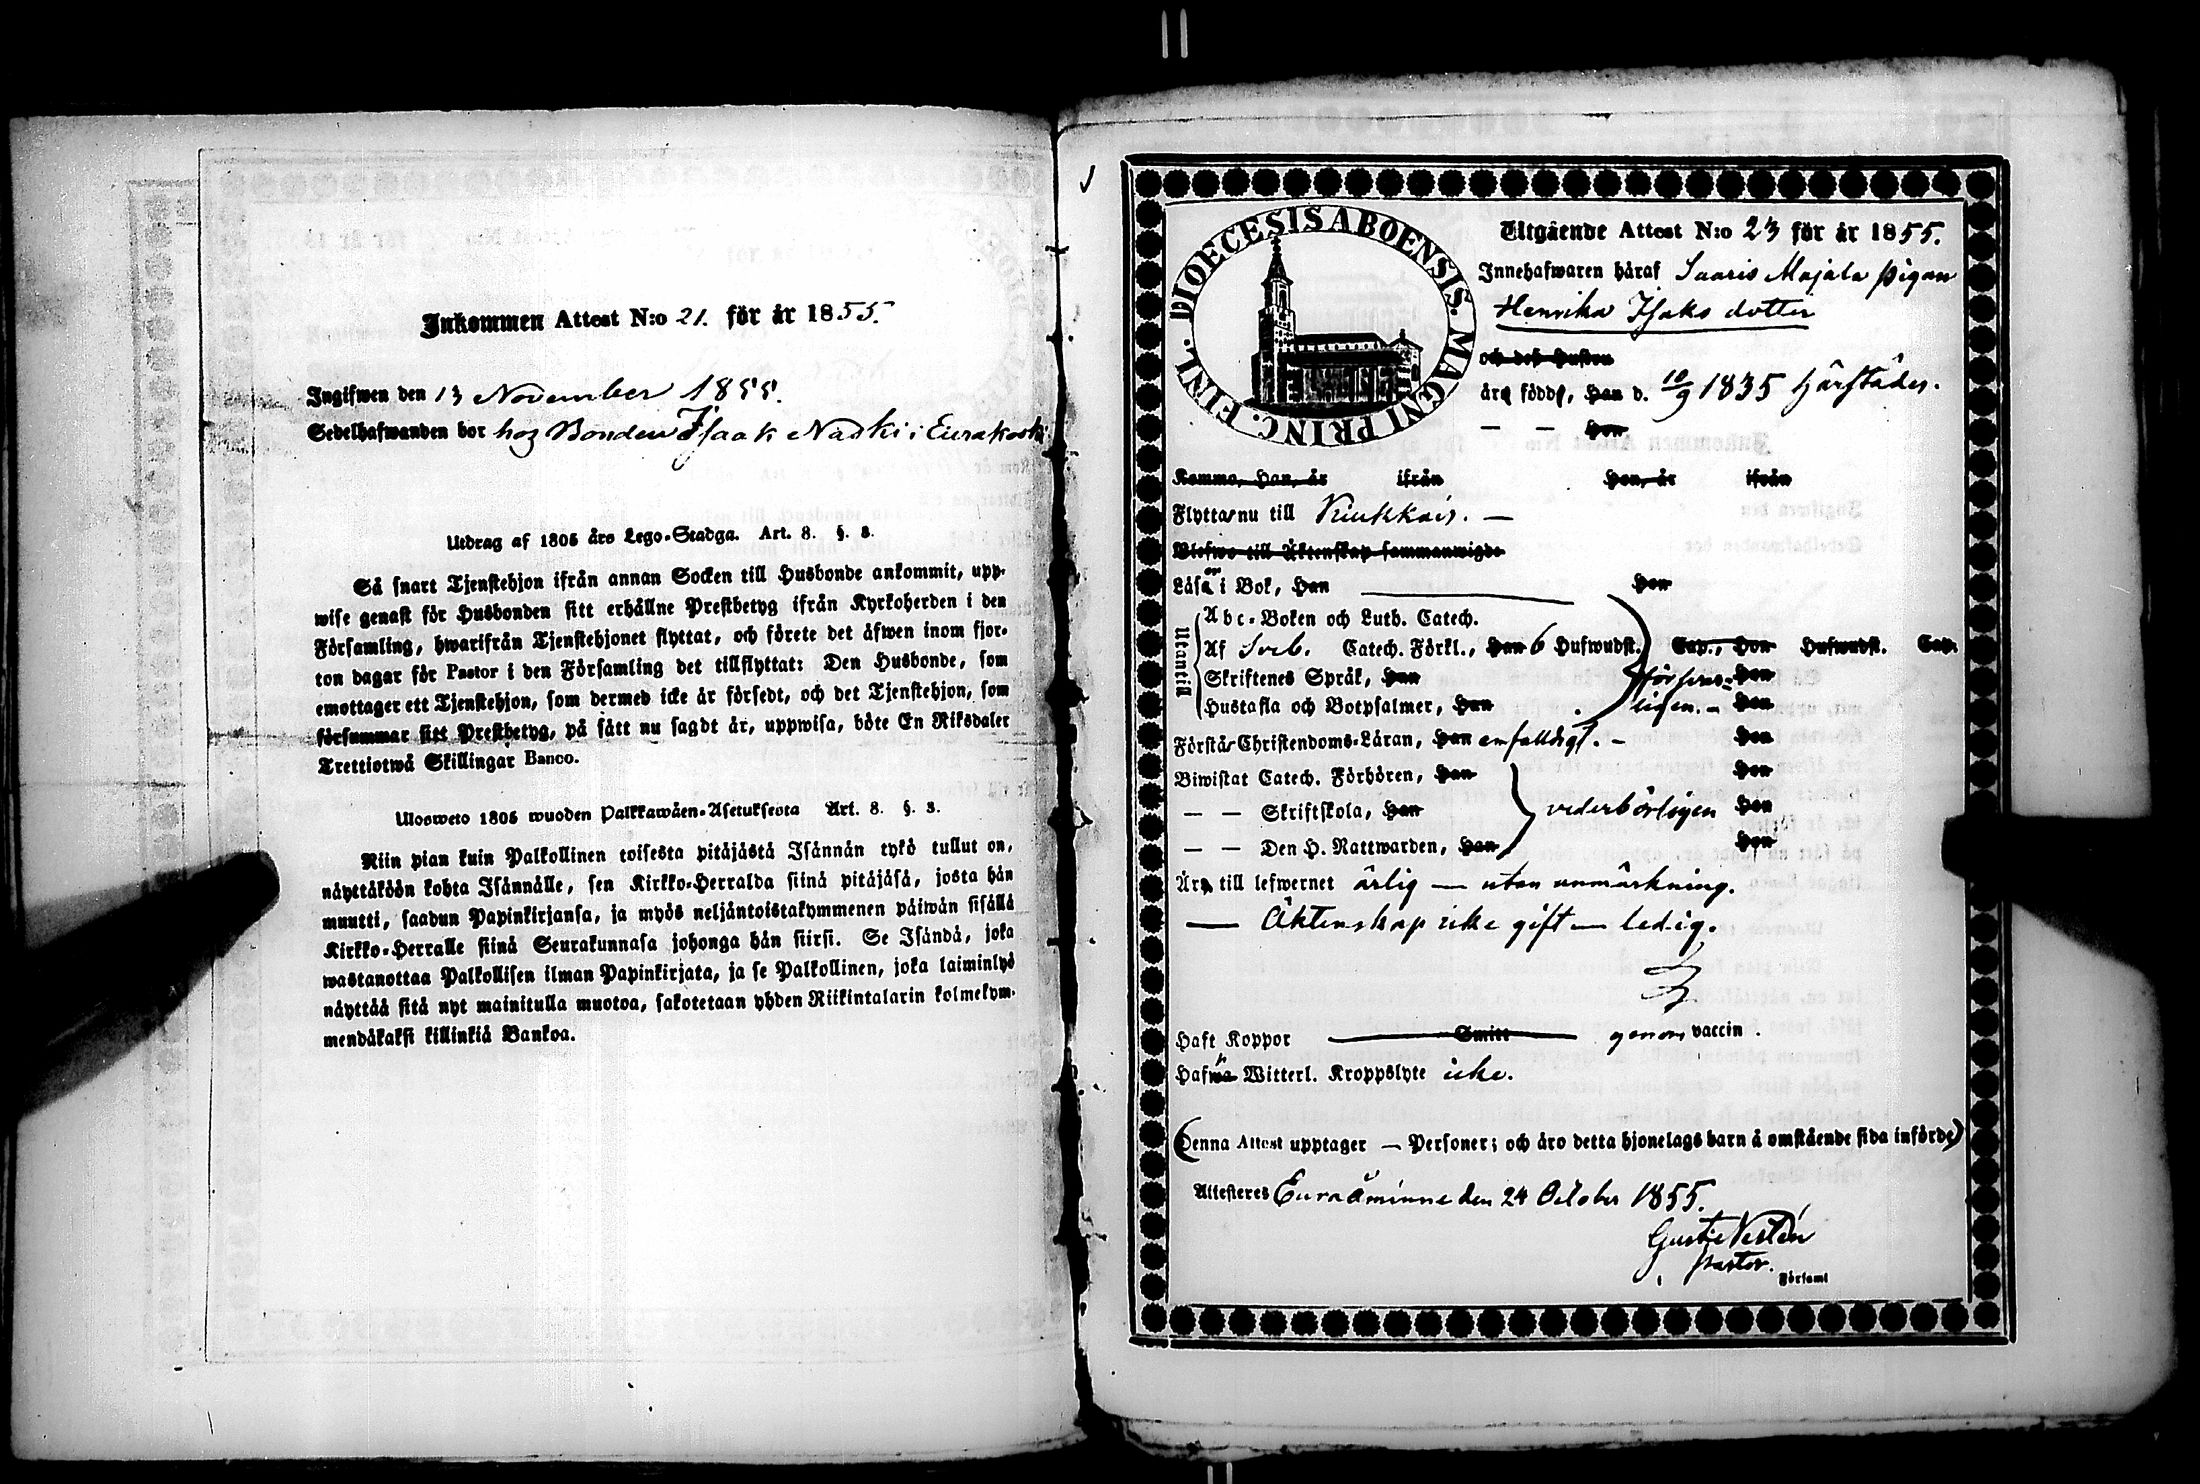 Inkommen Attest N:o 21. för år 1855.
Ingifwen den 13 November 1855.
Sedelhafwanden bor hos Bonden Isaak Naski i Eurakoski
Utdrag af 1805 års Lego-Stadga. Art. 8. §. 3.
Så snart Tjenstehjon ifrån annan Socken till Husbonde ankommit, upp-
wise genast för Husbonden sitt erhållne Prestbetyg ifrån Kyrkoherden i den
Församling, hwarifrån Tjenstehjonet flyttat, och förete det äfwen inom fjor-
ton dagar för Pastor i den Församling det tillflyttat: Den Husbonde, som
emottager ett Tjenstehjon, som dermed icke är försedt, och det Tjenstehjon, som
försummar sitt Prestbetyg, på sätt nu sagdt är, uppwisa, böte En Riksdaler
Trettiotwå Skillingar Banco.
Ulosweto 1805 wuoden Palkkawäen-Asetuksesta Art. 8. §. 3.
Niin pian kuin Palkollinen toisesta pitäjästä Isännän tykö tullut on,
näyttäköön kohta Isännälle, sen Kirkko-Herralda siinä pitäjäsä, josta hän
muutti, saadun Papinkirjansa, ja myös neljäntoistakymmenen päiwän sisällä
Kirkko-Herralle siinä Seurakunnasa johonga hän siirsi. Se Isändä, joka
wastanottaa Palkollisen ilman Papinkirjata, ja se Palkollinen, joka laiminlyö
näyttää sitä nyt mainitulla muotoa, sakotetaan yhden Riikintalarin kolmekym-
mendäkaksi killinkiä Bankoa.
DIOECESIS ABOENSIS. MAGNI PRINC. FINL.
Utgående Attest N:o 23 för år 1855.
Innehafwaren häraf Saaris Majala pigan
Henrika Isaks dotter
och deß Hustru
äro födde, Han d. 10/9 1835 härstädes.
— — Hon
Komma, Han, år ifrån Hon, år ifrån
Flytta nu till Kiukkais. —
Blefwo till Äktenskap sammanwigde
Läsa i Bok, Han Hon
Utantill
Abc-Boken och Luth. Catech.
Af Sveb. Catech. Förkl., Han 6 Hufwudst. Cap., Hon Hufwudst. Cap.
Skriftenes Språk, Han Hon
Hustafla och Botpsalmer, Han Hon
Förstå Christendoms-Läran, Han enfalldigt. — Hon
Biwistat Catech. Förhören, Han Hon
— — Skriftskola, Han vederbörligen Hon
— — Den H. Nattwarden, Han Hon
Äro till lefwernet ärlig — utan anmärkning.
— Äktenskap icke gift — ledig.
Haft Koppor Smitt genom vaccin.
Hafwa Witterl. Kroppslyte icke.
(Denna Attest upptager — Personer; och äro detta hjonelags barn å omstående sida införde)
Attesteres Euraåminne den 24 October 1855.
Pastor.
Församl